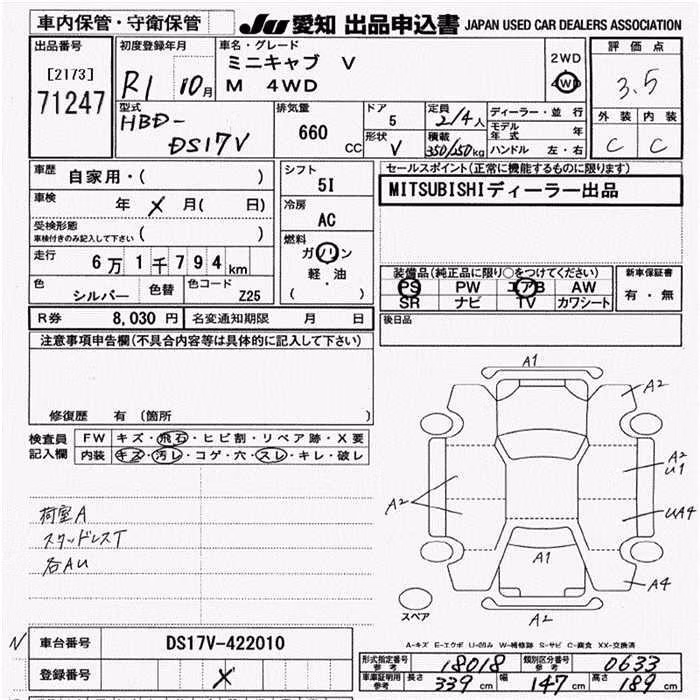 車内保管・守衛保管 JU 愛知 出品申込書 JAPAN USED CAR DEALERS ASSOCIATION
出品番号 [2173] 71247
初度登録年月 R1 10月
車名・グレード ミニキャブ V
M 4WD
2WD 4WD
評価点 3.5
外装 内装
C C
型式 HBD-DS17V
排気量 660 CC
ドア 5
形状 V
定員 2/4人
積載 350/250kg
ディーラー・並行
モデル年式 年
ハンドル 左・右
車歴 自家用・( )
車検 年 メ 月( 日)
受検形態 車検付きのみ記入して下さい ( )
走行 6万1千794km
色 シルバー 色替 色コード Z25
シフト 5I
冷房 AC
燃料 ガソリン
軽・油
( )
セールスポイント(正常に機能するものに限ります)
MITSUBISHIディーラー出品
装備品(純正品に限り○をつけてください)
PS PW エアB AW
SR ナビ TV カワシート
新車保証書
有・無
R券 8,030円 名変通知期限 月 日
後日品
注意事項申告欄(不具合内容等は具体的に記入して下さい)
修復歴 有(箇所 )
検査員記入欄
FW キズ・飛石・ヒビ割・リペア跡・X要
内装 キズ・汚レ・コゲ・穴・スレ・キレ・破レ
荷室A
スタッドレスT
各AU
A1
A2
A2
A2
U1
UA4
A1
A4
A2
スペア
A-キズ E-エクボ U-凹み W-補修跡 S-サビ C-腐食 XX-交換済
N 車台番号 DS17V-422010
登録番号 メ
形式指定番号 参考 18018 類別区分番号 参考 0633
車庫証明用 参考 長さ 339cm 幅 147cm 高さ 189cm